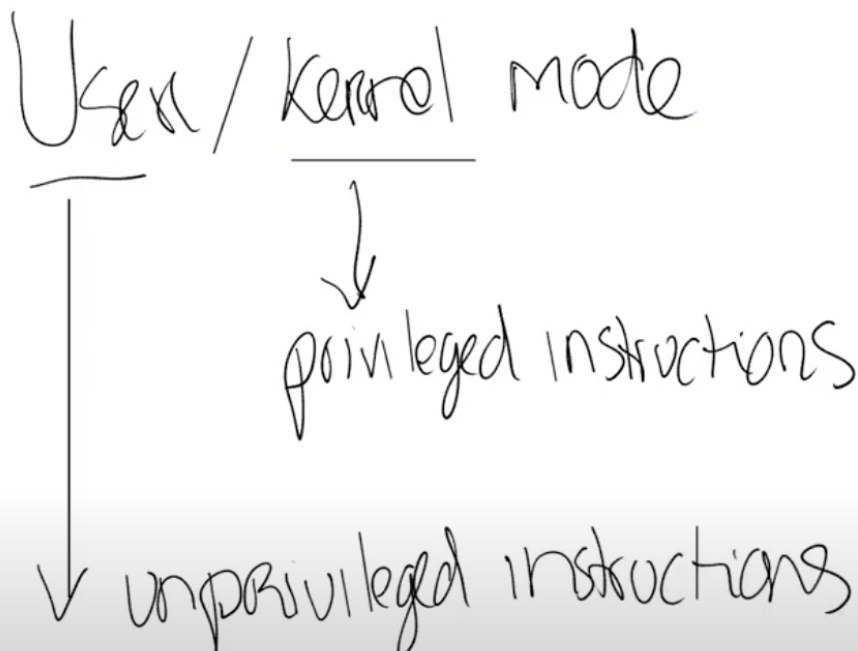 User / Kernel mode
privileged instructions
unprivileged instructions